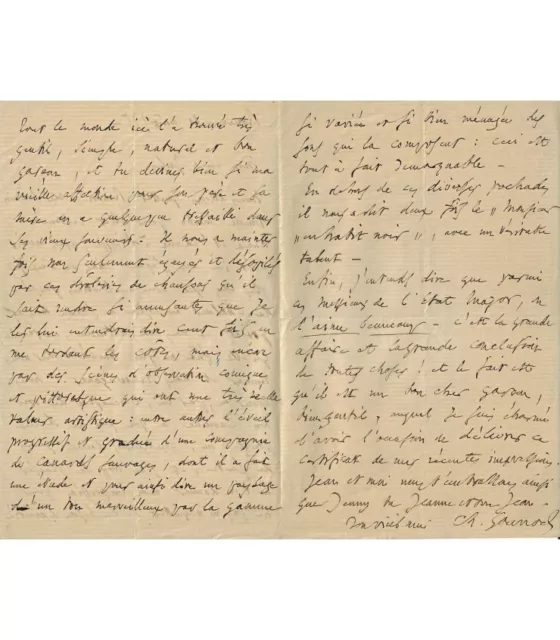 Tout le monde ici l'a trouvé très
gentil, simple, naturel et bon
garçon, et tu devines bien si ma
vieille affection pour son père et sa
mère en a quelque peu tressailli dans
ses vieux souvenirs. Il nous a maintes
fois non seulement égayés et
par ces de chansons qu'il
sait rendre si amusantes que je
les lui entendrais dire cent fois en
me tenant les côtes, mais encore
par des scènes d'observation comique
et pittoresque qui ont une très réelle
valeur artistique : entre autres l'éveil
progressif et gradué d'une compagnie
de canards sauvages, dont il a fait
une étude et pour ainsi dire un paysage
d'un ton merveilleux par la gamme
si variée et si bien ménagée des
sons qui la composent : ceci est
tout à fait remarquable —
En dehors de ces diverses pochades,
il nous a dit deux fois le "Monsieur
en habit noir", avec un véritable
talent —
Enfin, j'entends dire que parmi
ces messieurs de l'État Major, on
l'aime beaucoup — c'est la grande
affaire et la grande conclusion
de toutes choses ! et le fait est
qu'il est un bon cher garçon,
bien gentil, auquel je suis charmé
d'avoir l'occasion de délivrer ce
certificat de mes récentes impressions.
Jean et moi nous t'embrassons ainsi
que Jenny Jeanne et Jean —
Ton vieil ami Ch. Gounod